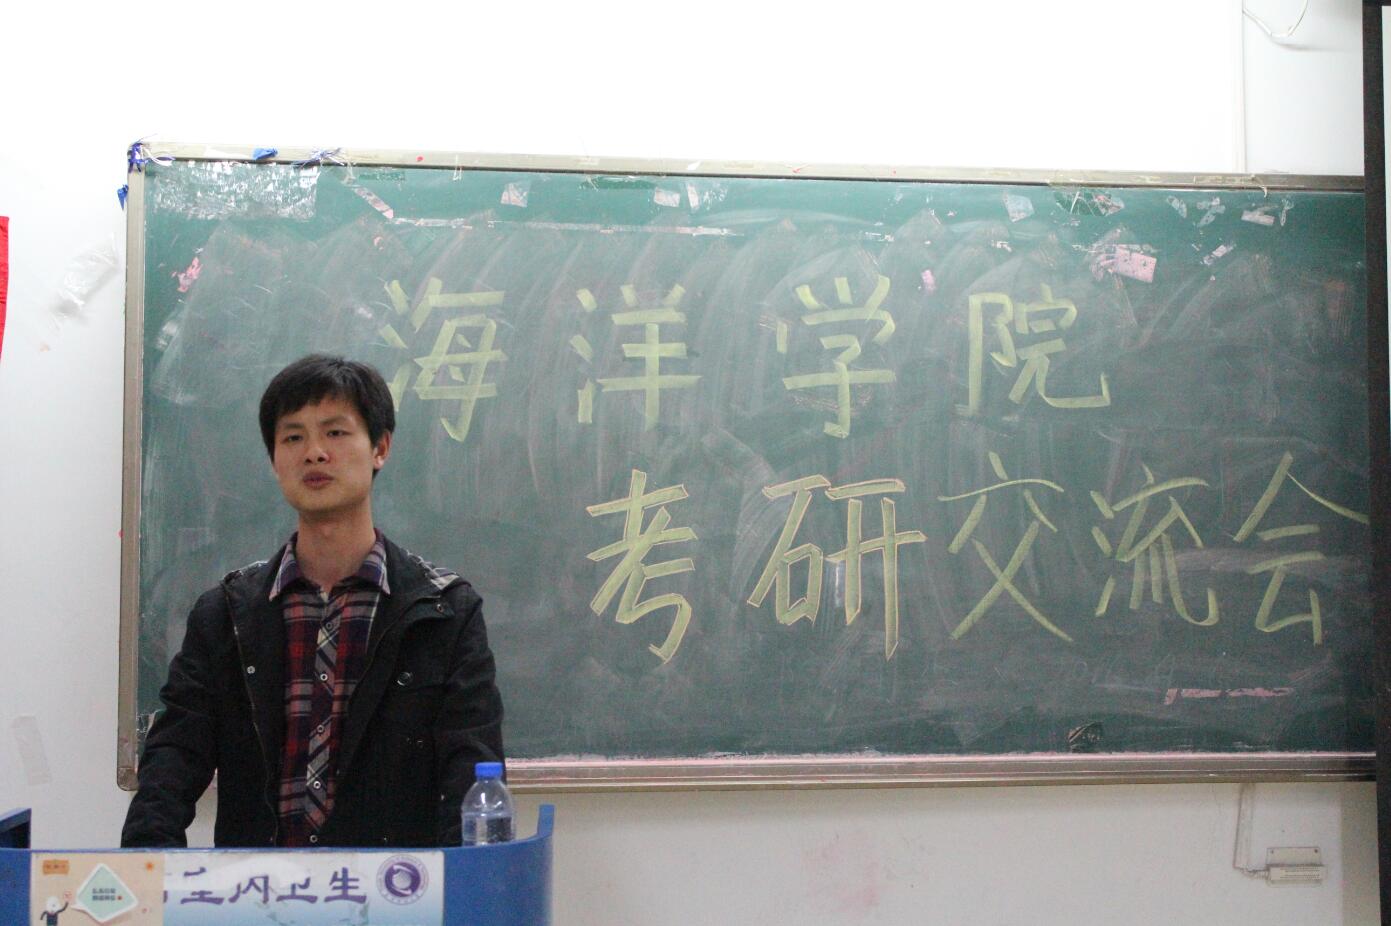 海洋学院
考研交流会
室内卫生